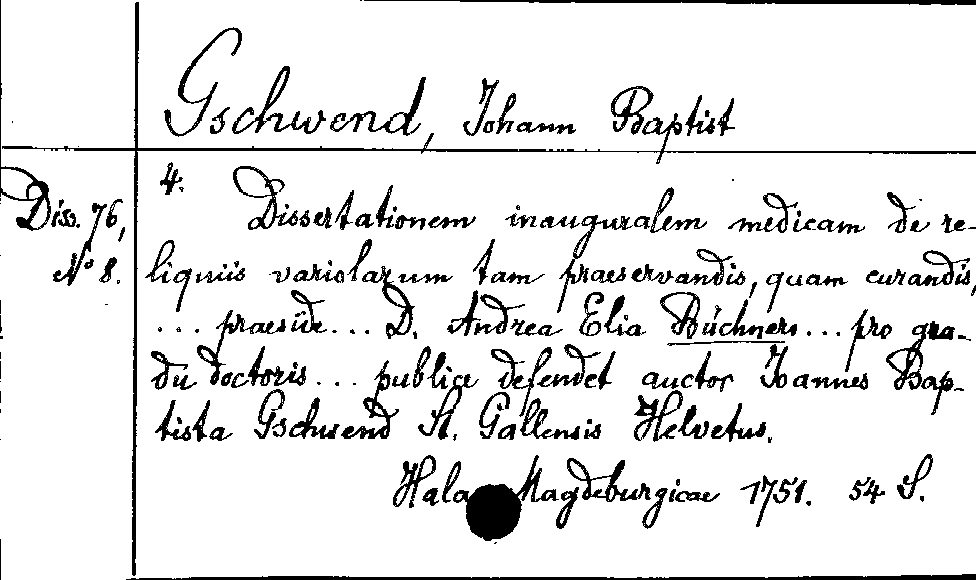 Gschwend, Johann Baptist
Diss. 76,
No 8.
4.
Dissertationem inauguralem medicam de re-
liquiis variolarum tam praeservandis, quam curandis,
... praeside... D. Andrea Elia Büchnero... pro gra-
du doctoris... publice defendet auctor Joannes Bap-
tista Gschwend St. Gallensis Helvetus.
Halae Magdeburgicae 1751. 54 S.